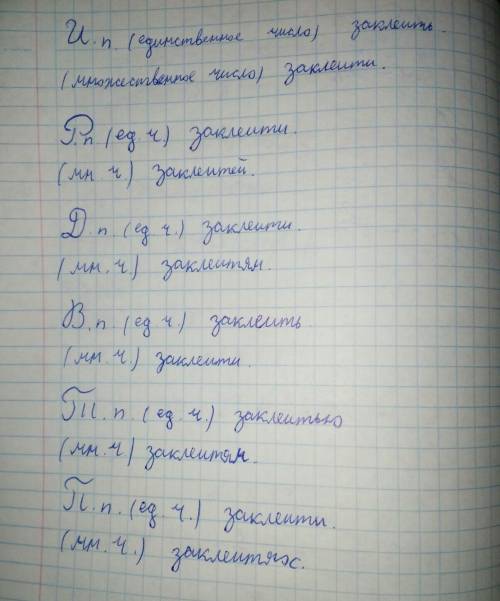 И.п. (единственное число) заклеить.
(множественное число) заклеити.
Р.п. (ед.ч.) заклеити.
(мн.ч) заклеитей.
Д.п. (ед.ч.) заклеити.
(мн.ч.) заклеитям.
В.п. (ед.ч.) заклеить
(мн.ч.) заклеити.
Тп.п. (ед.ч.) заклеитью
(мн.ч) заклеитям.
П.п. (ед.ч.) заклеити.
(мн.ч.) заклеитях.